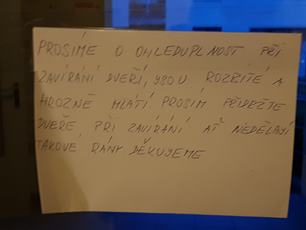 PROSÍME O OHLEDUPLNOST PŘI
ZAVÍRÁNÍ DVEŘÍ, JSOU ROZBITÉ A
HROZNĚ MLÁTÍ. PROSÍM PŘIDRŽTE
DVEŘE, PŘI ZAVÍRÁNÍ AŤ NEDĚLAJÍ
TAKOVÉ RÁNY DĚKUJEME